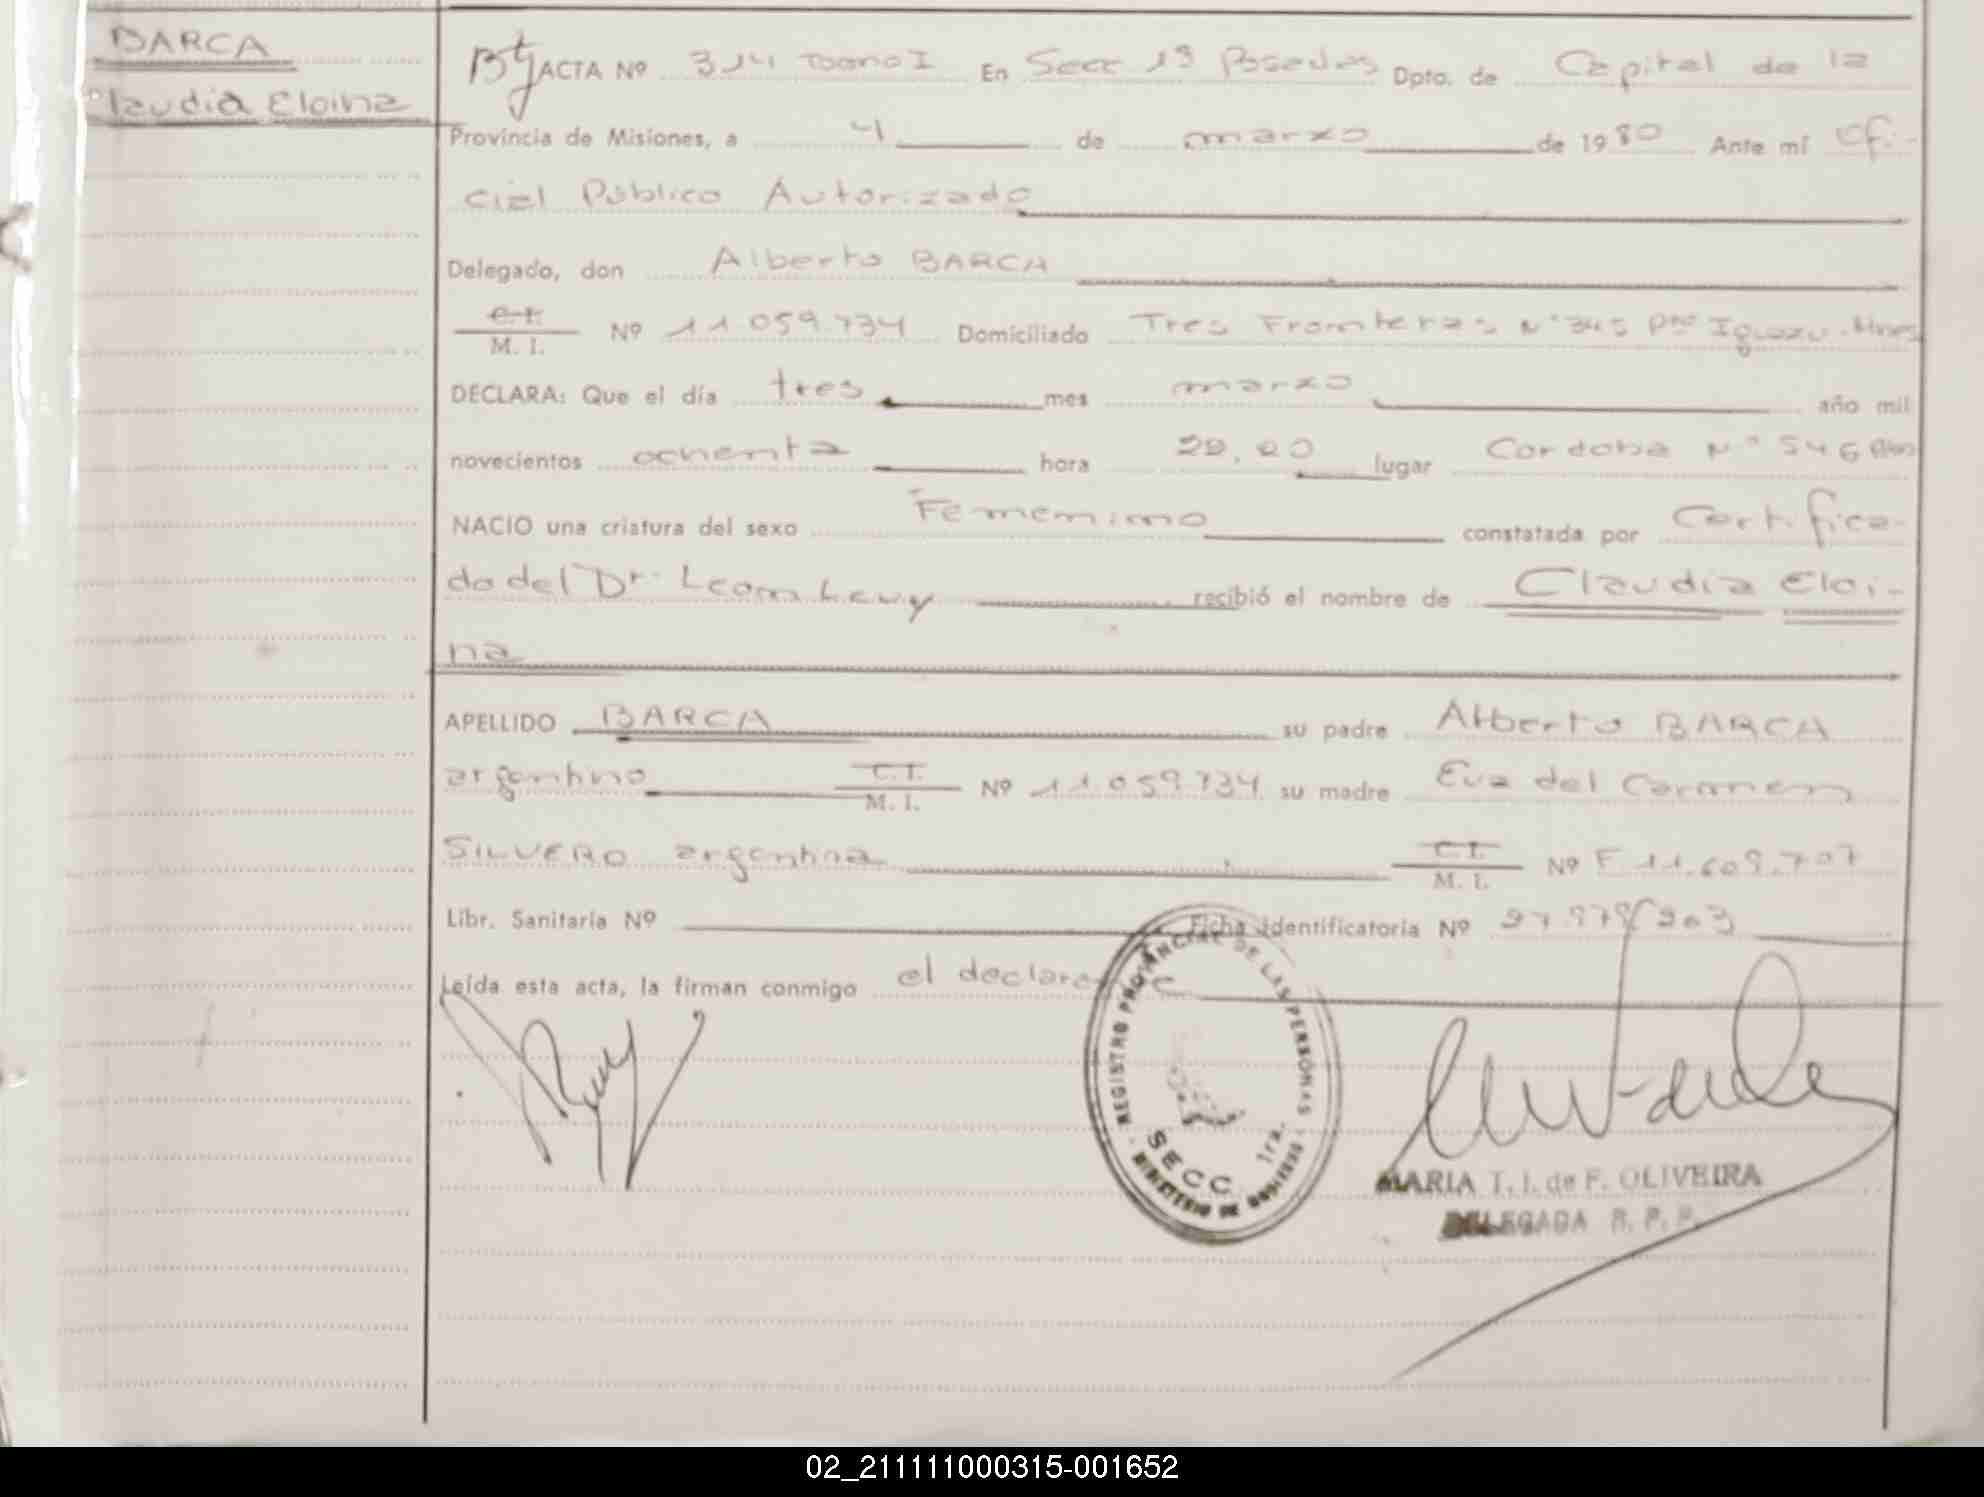 BARCA
Claudia Eloina
ACTA Nº 314 tomo I En Secc 1ª Posadas Dpto. de Capital de la
Provincia de Misiones, a 4 de marzo de 1980 Ante mí Ofi-
cial Público Autorizado
Delegado, don Alberto BARCA
C.I.
M. I. Nº 11.059.734 Domiciliado Tres Fronteras Nº 345 Pto Iguazu - Mnes
DECLARA: Que el día tres mes marzo año mil
novecientos ochenta hora lugar Cordoba Nº 546
NACIO una criatura del sexo Femenino constatada por Certifica-
do del Dr. Leon Levy recibió el nombre de Claudia Eloi-
na
APELLIDO BARCA su padre Alberto BARCA
argentino C.I. M. I. Nº 11.059.734 su madre Eva del Carmen
SILVERO argentina C.I. M. I. Nº F 11.609.707
Libr. Sanitaria Nº Ficha identificatoria Nº
Leída esta acta, la firman conmigo el declarante
REGISTRO PROVINCIAL DE LAS PERSONAS
SECC 1ra.
MINISTERIO DE GOBIERNO
MARIA T. I. de F. OLIVEIRA
DELEGADA R. P. P.
02_211111000315-001652